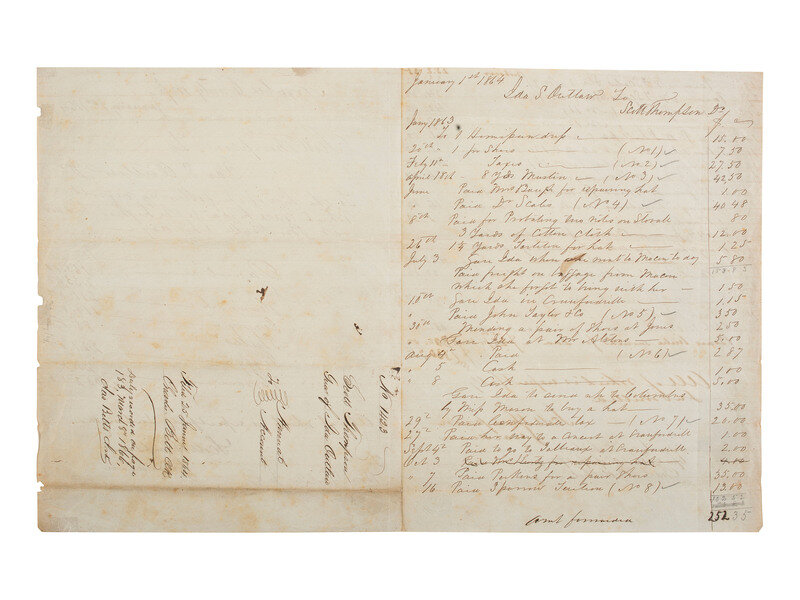 January 1st 1864
Ida S. Outlaw To
Scott Thompson Dr
Jany 1863 $ c
To 1 Homespun dress 15.00
20th " 1 pr Shoes (No 1) 7.50
Feby 11th Taxes (No 2) 27.50
April 18th 8 Yds Muslin (No 3) 42.50
June Paid Mrs for repairing hat 1.00
" Paid Dr Scales (No 4) 40 48
8th Paid for Probating two notes on 80
3 Yards of Cotton Cloth 12.00
25th 1½ Yards Tarleton for hat 1.25
July 3 Gave Ida when she went to Macon to day 5 80
Paid freight on baggage from Macon
which she forgot to bring with her 1.50
10th Gave Ida in Crawfordville 1.15
" Paid John Taylor & Co (No 5) 3.50
30th Mending a pair of Shoes at 2.50
" Gave Ida at Mrs 5.00
Augt 4th Paid (No 6) 2 87
" 5 Cash 1.00
" 8 Cash 5.00
Gave Ida to send to Columbus
by Miss Mason to buy a hat 35.00
29th Paid Confederate Tax (No 7) 20.00
27th Paid her way to a Concert at Crawfordville 1.00
Sept 4th Paid to go to at Crawfordville 2.00
Oct 3 for repairing hat
" 7 Paid Perkins for a pair Shoes 35.00
" 16 Paid Tuition (No 8) 13.00
252 35
Amt forwarded
No 1123
Scott Thompson
Gdn of Ida Outlaw
To Annual
Account
Filed 20 June 1864
Clk
Recorded on page
183, Word &c 1866